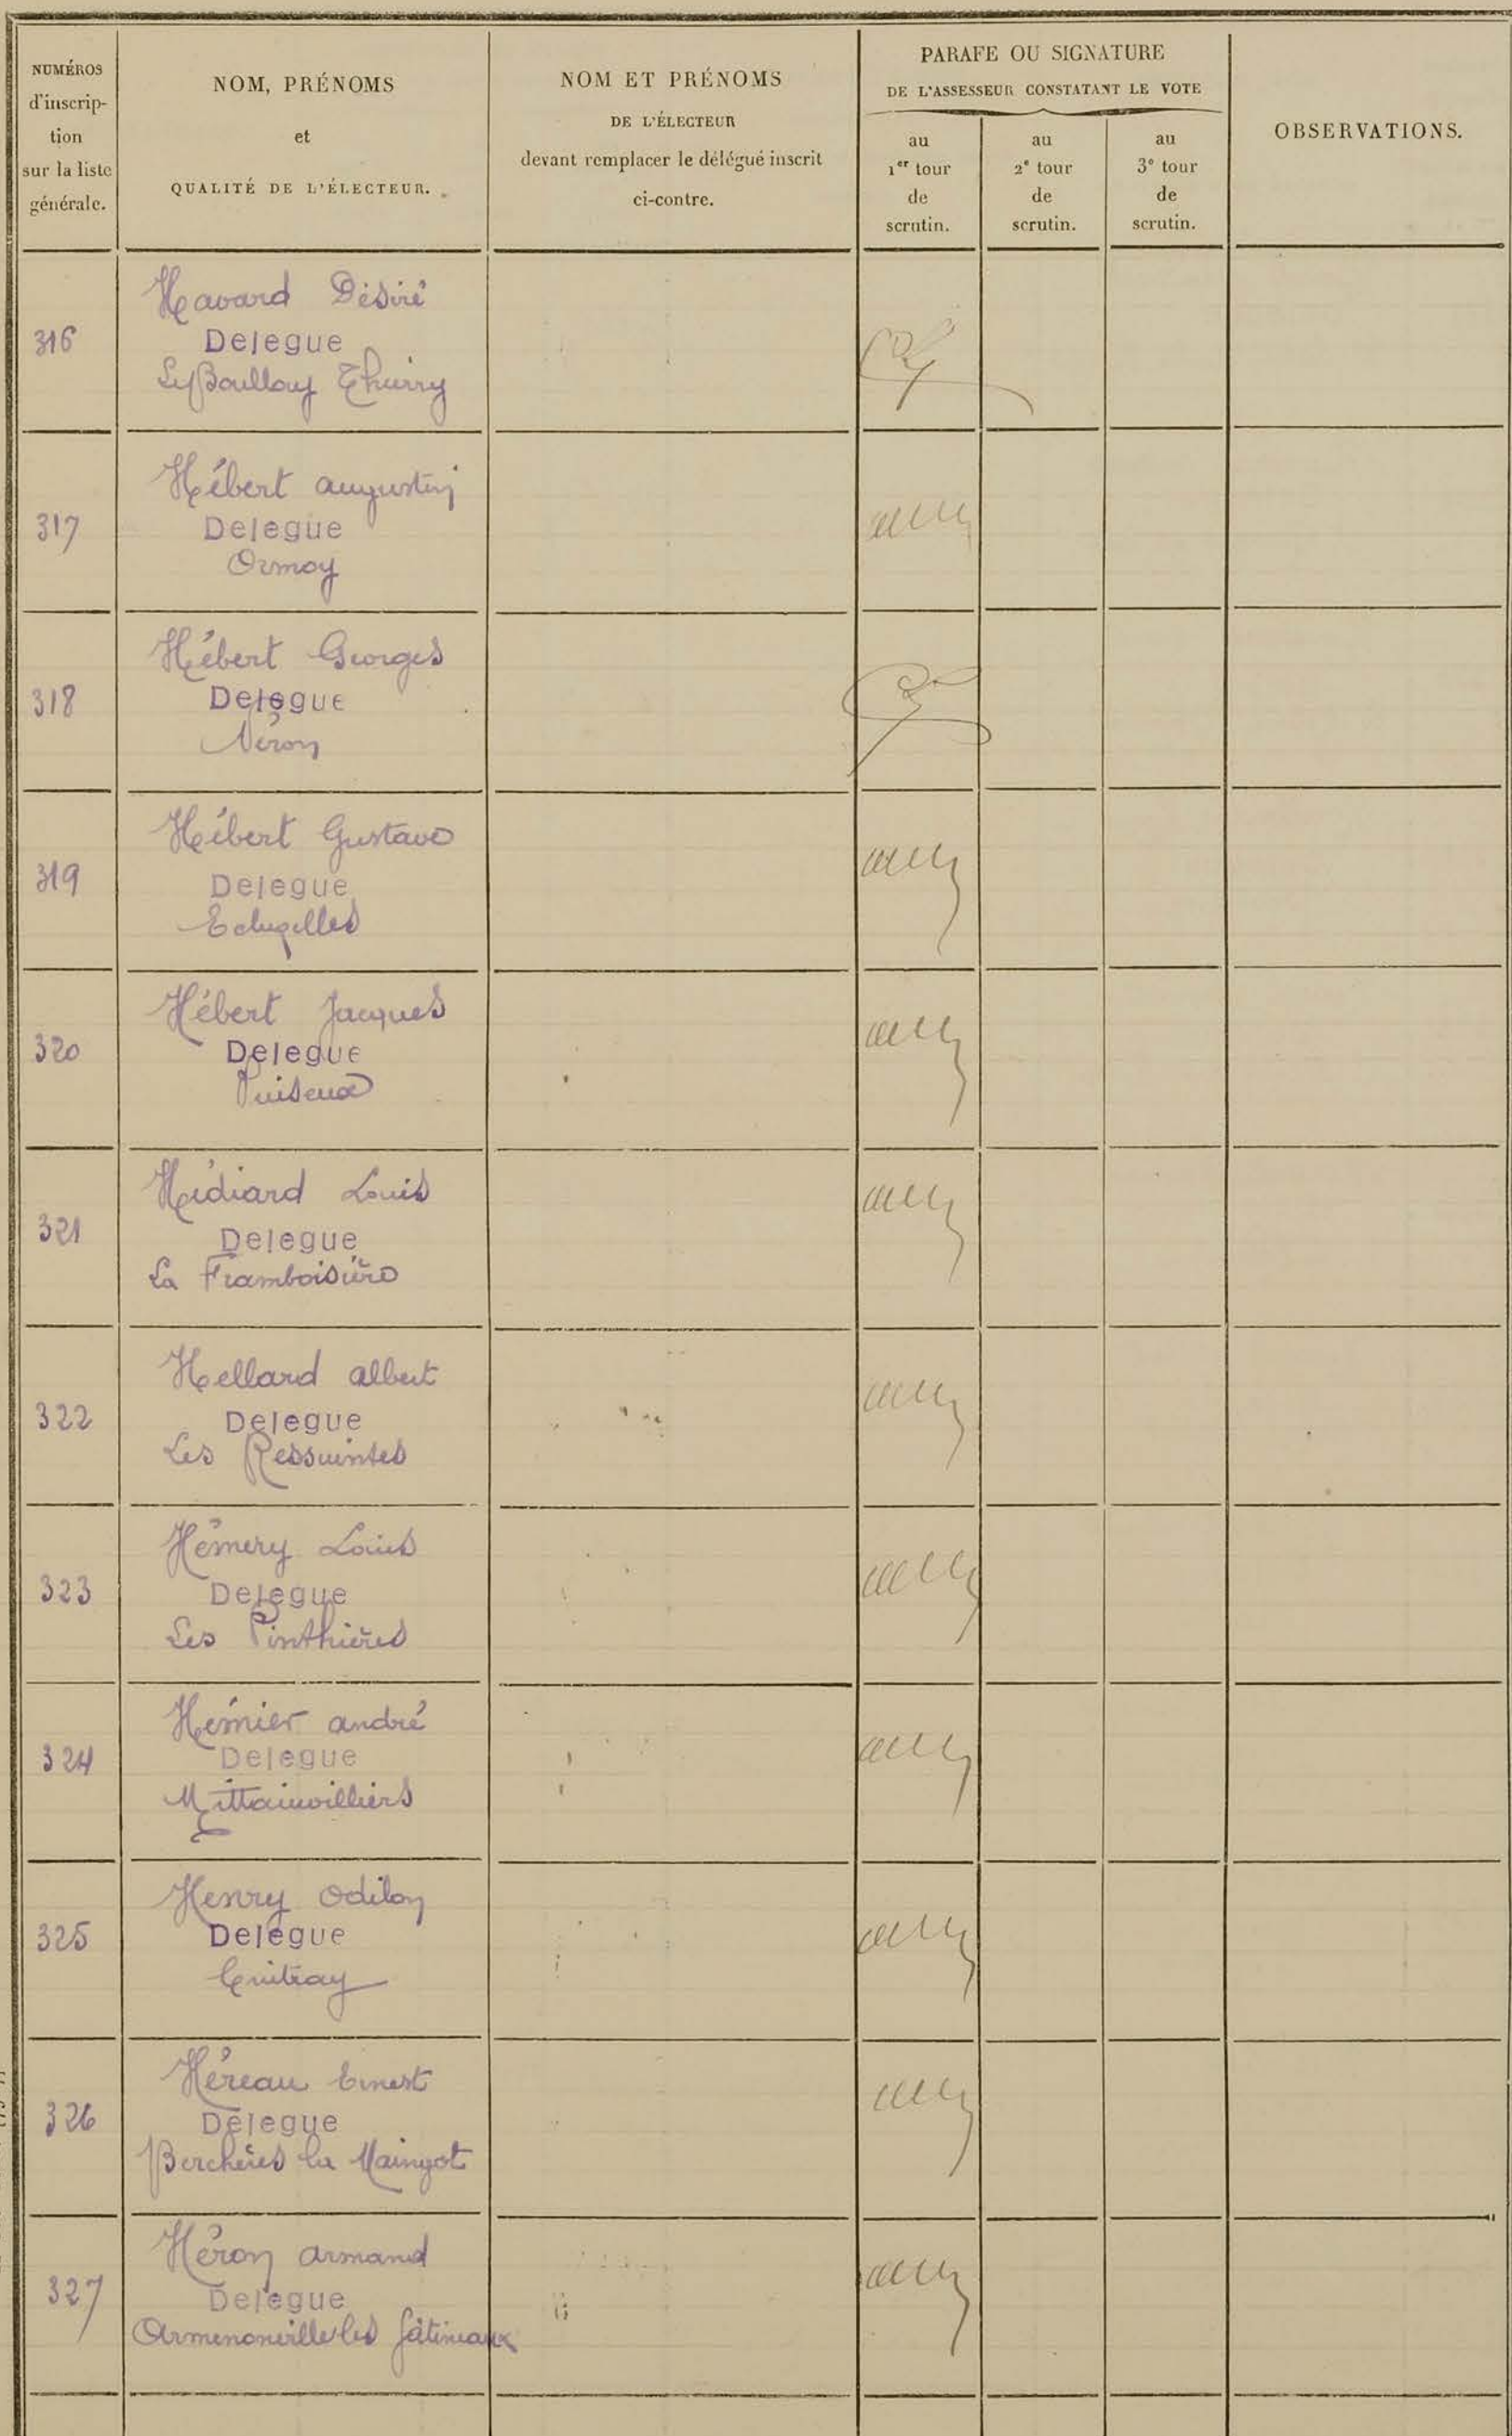 NUMÉROS
d'inscrip-
tion
sur la liste
générale.
NOM, PRÉNOMS
et
QUALITÉ DE L'ÉLECTEUR.
NOM ET PRÉNOMS
DE L'ÉLECTEUR
devant remplacer le délégué inscrit
ci-contre.
PARAFE OU SIGNATURE
DE L'ASSESSEUR CONSTATANT LE VOTE
au
1er tour
de
scrutin.
au
2e tour
de
scrutin.
au
3e tour
de
scrutin.
OBSERVATIONS.
316
Havard Désiré
Delegue
Le Boullay Thierry
317
Hébert augustin
Delegue
Ormoy
318
Hébert Georges
Delegue
Néron
319
Hébert Gustave
Delegue
Ecluzelles
320
Hébert Jacques
Delegue
Puiseux
321
Hédiard Louis
Delegue
La Framboisière
322
Hellard albert
Delegue
Les Ressuintes
323
Hémery Louis
Delegue
Les Pinthières
324
Hémier andré
Delegue
Mittainvilliers
325
Henry Odilon
Delegue
326
Héreau Ernest
Delegue
Berchères la Maingot
327
Héron armand
Delegue
Armenonville les Gâtineaux